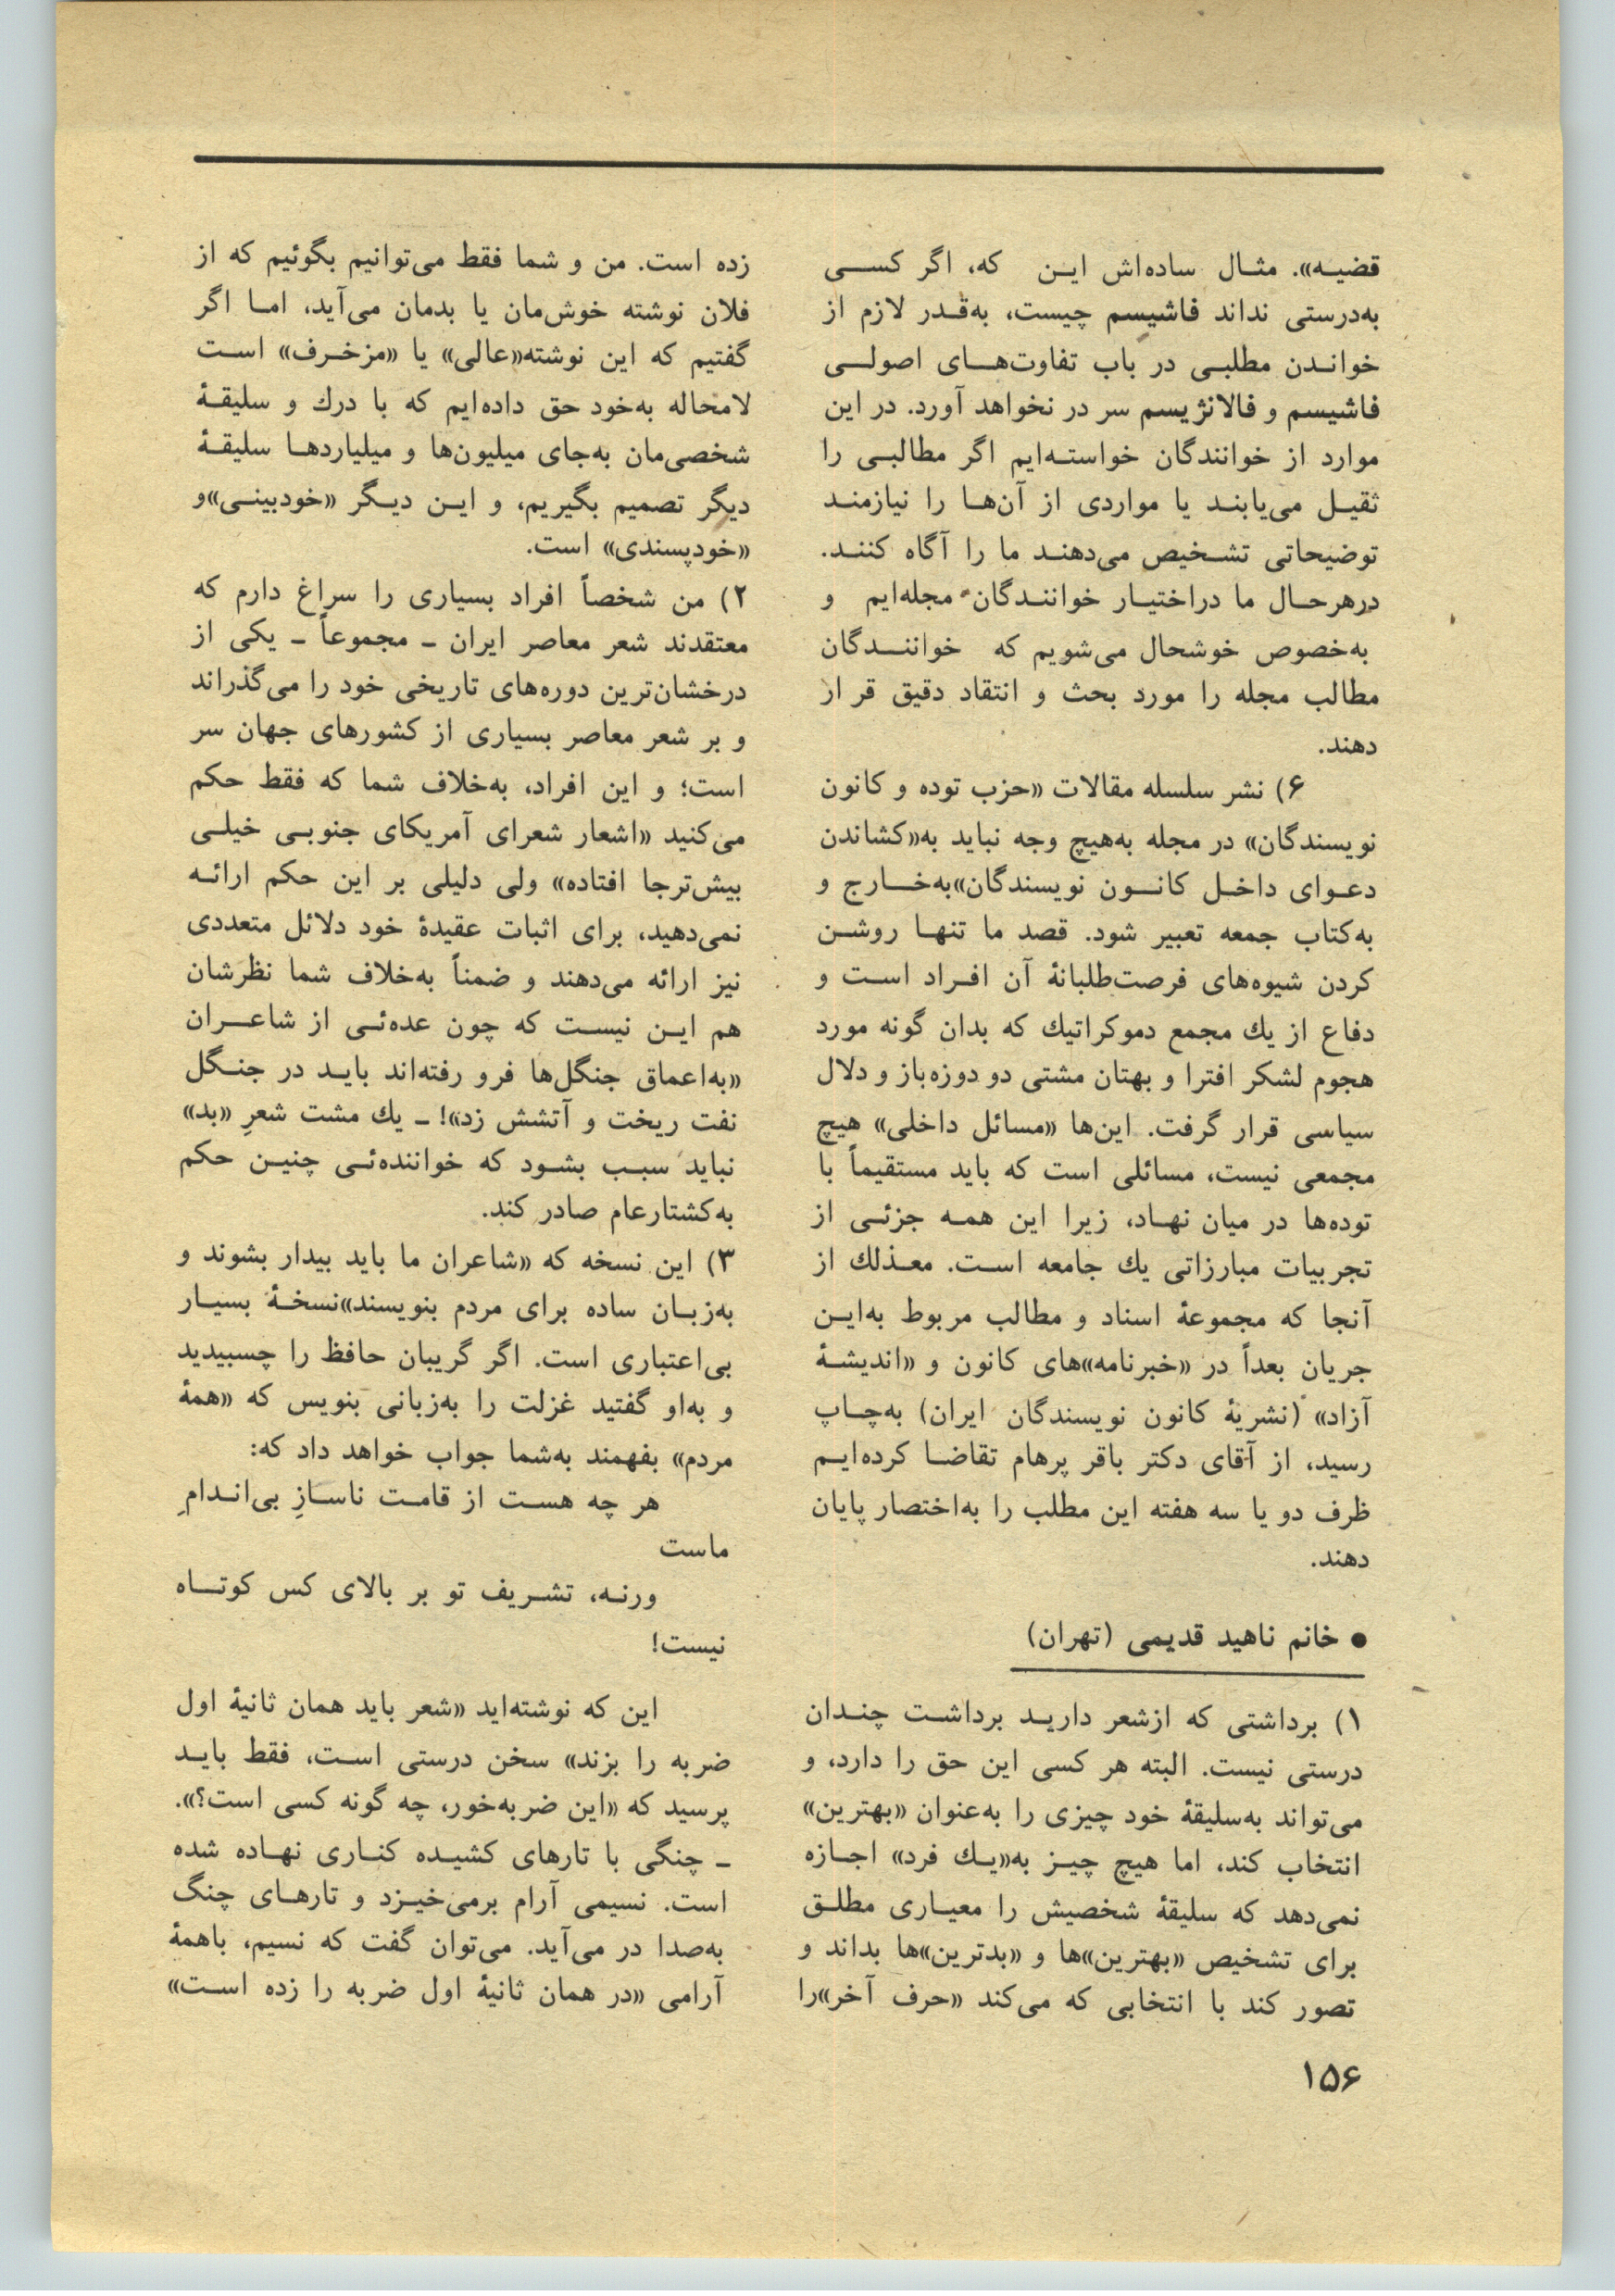 قضیـه». مثـال ساده‌اش ایـن که، اگر کسـی
به‌درستی نداند فاشیسم چیست، به‌قـدر لازم از
خوانـدن مطلبـی در باب تفاوت‌هـای اصولـی
فاشیسم و فالانژیسم سر در نخواهد آورد. در این
موارد از خوانندگان خواستـه‌ایم اگر مطالبـی را
ثقیـل می‌یابنـد یا مواردی از آن‌هـا را نیازمنـد
توضیحاتی تشـخیص می‌دهنـد ما را آگاه کننـد.
درهرحـال ما دراختیـار خواننـدگان مجله‌ایم و
به‌خصوص خوشحال می‌شویم که خواننـدگان
مطالب مجله را مورد بحث و انتقاد دقیق قرار
دهند.
۶) نشر سلسله مقالات «حزب توده و کانون
نویسندگان» در مجله به‌هیچ وجه نباید به«کشاندن
دعـوای داخـل کانـون نویسندگان»به‌خـارج و
به‌کتاب جمعه تعبیر شود. قصد ما تنهـا روشـن
کردن شیوه‌های فرصت‌طلبانهٔ آن افـراد اسـت و
دفاع از یك مجمع دموکراتیك که بدان گونه مورد
هجوم لشکر افترا و بهتان مشتی دو دوزه‌باز و دلال
سیاسی قرار گرفت. این‌ها «مسائل داخلی» هیچ
مجمعی نیست، مسائلی است که باید مستقیماً با
توده‌ها در میان نهـاد، زیرا این همـه جزئـی از
تجربیات مبارزاتی یك جامعه اسـت. معـذلك از
آنجا که مجموعهٔ اسناد و مطالب مربوط به‌ایـن
جریان بعداً در «خبرنامه»های کانون و «اندیشـهٔ
آزاد» (نشریهٔ کانون نویسندگان ایران) به‌چـاپ
رسید، از آقای دکتر باقر پرهام تقاضـا کرده‌ایـم
ظرف دو یا سه هفته این مطلب را به‌اختصار پایان
دهند.
● خانم ناهید قدیمی (تهران)
۱) برداشتی که ازشعر داریـد برداشـت چنـدان
درستی نیست. البته هر کسی این حق را دارد، و
می‌تواند به‌سلیقهٔ خود چیزی را به‌عنوان «بهترین»
انتخاب کند، اما هیچ چیـز به«یـك فرد» اجـازه
نمی‌دهد که سلیقهٔ شخصیش را معیـاری مطلـق
برای تشخیص «بهترین»ها و «بدترین»ها بداند و
تصور کند با انتخابی که می‌کند «حرف آخر»را
زده است. من و شما فقط می‌توانیم بگوئیم که از
فلان نوشته خوش‌مان یا بدمان می‌آید، امـا اگر
گفتیم که این نوشته«عالی» یا «مزخـرف» اسـت
لامحاله به‌خود حق داده‌ایم که با درك و سلیقـهٔ
شخصی‌مان به‌جای میلیون‌ها و میلیاردهـا سلیقـهٔ
دیگر تصمیم بگیریم، و ایـن دیـگر «خودبینـی»و
«خودپسندی» است.
۲) من شخصاً افراد بسیاری را سراغ دارم که
معتقدند شعر معاصر ایران ـ مجموعاً ـ یکی از
درخشان‌ترین دوره‌های تاریخی خود را می‌گذراند
و بر شعر معاصر بسیاری از کشورهای جهان سر
است؛ و این افراد، به‌خلاف شما که فقط حکم
می‌کنید «اشعار شعرای آمریکای جنوبـی خیلـی
بیش‌ترجا افتاده» ولی دلیلی بر این حکم ارائـه
نمی‌دهید، برای اثبات عقیدهٔ خود دلائل متعددی
نیز ارائه می‌دهند و ضمناً به‌خلاف شما نظرشان
هم ایـن نیسـت که چون عده‌ئـی از شاعـران
«به‌اعماق جنگل‌ها فرو رفته‌اند بایـد در جنـگل
نفت ریخت و آتشش زد»! ـ یك مشت شعرِ «بد»
نباید سبـب بشـود که خواننده‌ئـی چنیـن حکم
به‌کشتارعام صادر کند.
۳) این نسخه که «شاعران ما باید بیدار بشوند و
به‌زبـان ساده برای مردم بنویسند»نسخـهٔ بسیـار
بی‌اعتباری است. اگر گریبان حافظ را چسبیدید
و به‌او گفتید غزلت را به‌زبانی بنویس که «همهٔ
مردم» بفهمند به‌شما جواب خواهد داد که:
هر چه هسـت از قامـت ناسـازِ بی‌انـدامِ
ماست
ورنـه، تشـریف تو بر بالای کس کوتـاه
نیست!
این که نوشته‌اید «شعر باید همان ثانیهٔ اول
ضربه را بزند» سخن درستی اسـت، فقط بایـد
پرسید که «این ضربه‌خور، چه گونه کسی است؟».
ـ چنگی با تارهای کشیـده کنـاری نهـاده شده
است. نسیمی آرام برمی‌خیـزد و تارهـای چنگ
به‌صدا در می‌آید. می‌توان گفت که نسیم، باهمهٔ
آرامی «در همان ثانیهٔ اول ضربه را زده اسـت»
۱۵۶